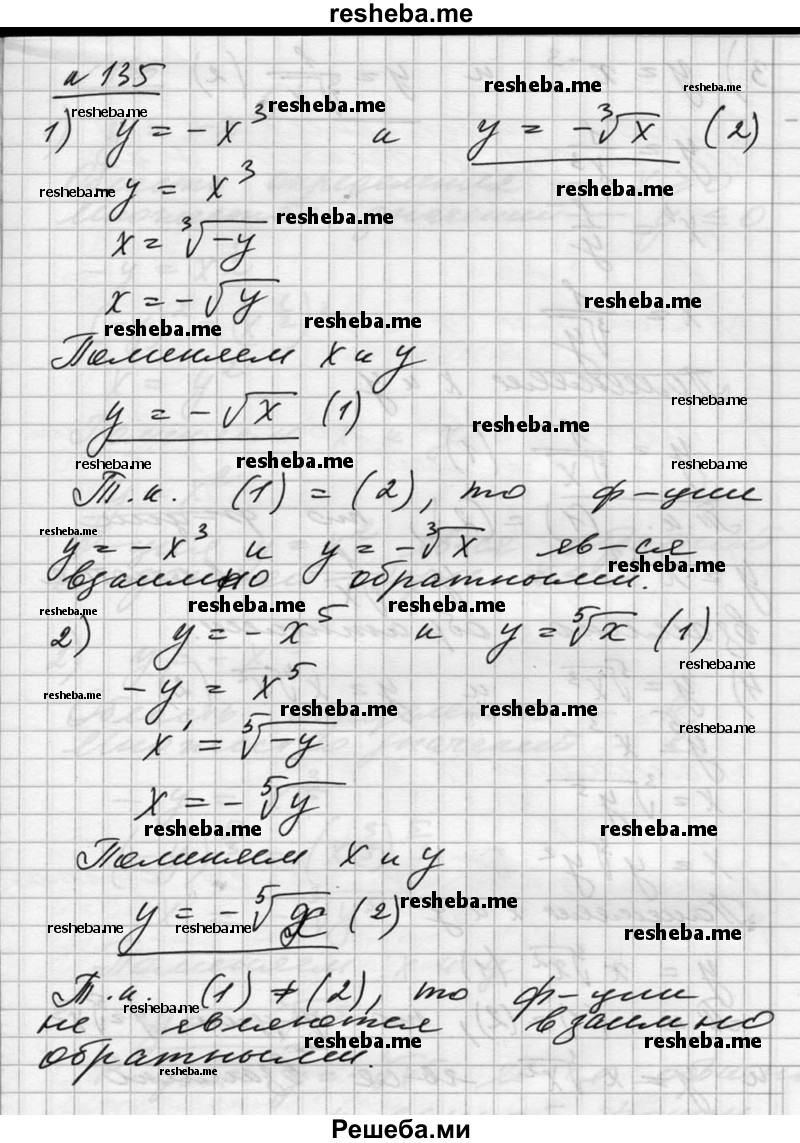 resheba.me
n 135
resheba.me resheba.me resheba.me resheba.me
1) y = - x³ и y = - ³√x (2)
resheba.me resheba.me
- y = x³
resheba.me
x = ³√-y
resheba.me
x = - √y
resheba.me resheba.me
Поменяем x и y
resheba.me
y = - √x (1)
resheba.me
resheba.me resheba.me resheba.me
Т.к. (1) = (2), то ф-ции
resheba.me
y = - x³ и y = - ³√x яв-ся
resheba.me
взаимно обратными.
resheba.me resheba.me
2) y = - x⁵ и y = ⁵√x (1)
resheba.me
- y = x⁵
resheba.me resheba.me resheba.me
resheba.me
x = ⁵√-y
x = - ⁵√y
resheba.me resheba.me
Поменяем x и y
resheba.me
y = - ⁵√x (2)
resheba.me resheba.me resheba.me
Т.к. (1) ≠ (2), то ф-ции
resheba.me
не являются взаимно
resheba.me resheba.me
обратными.
resheba.me
Решеба.ми